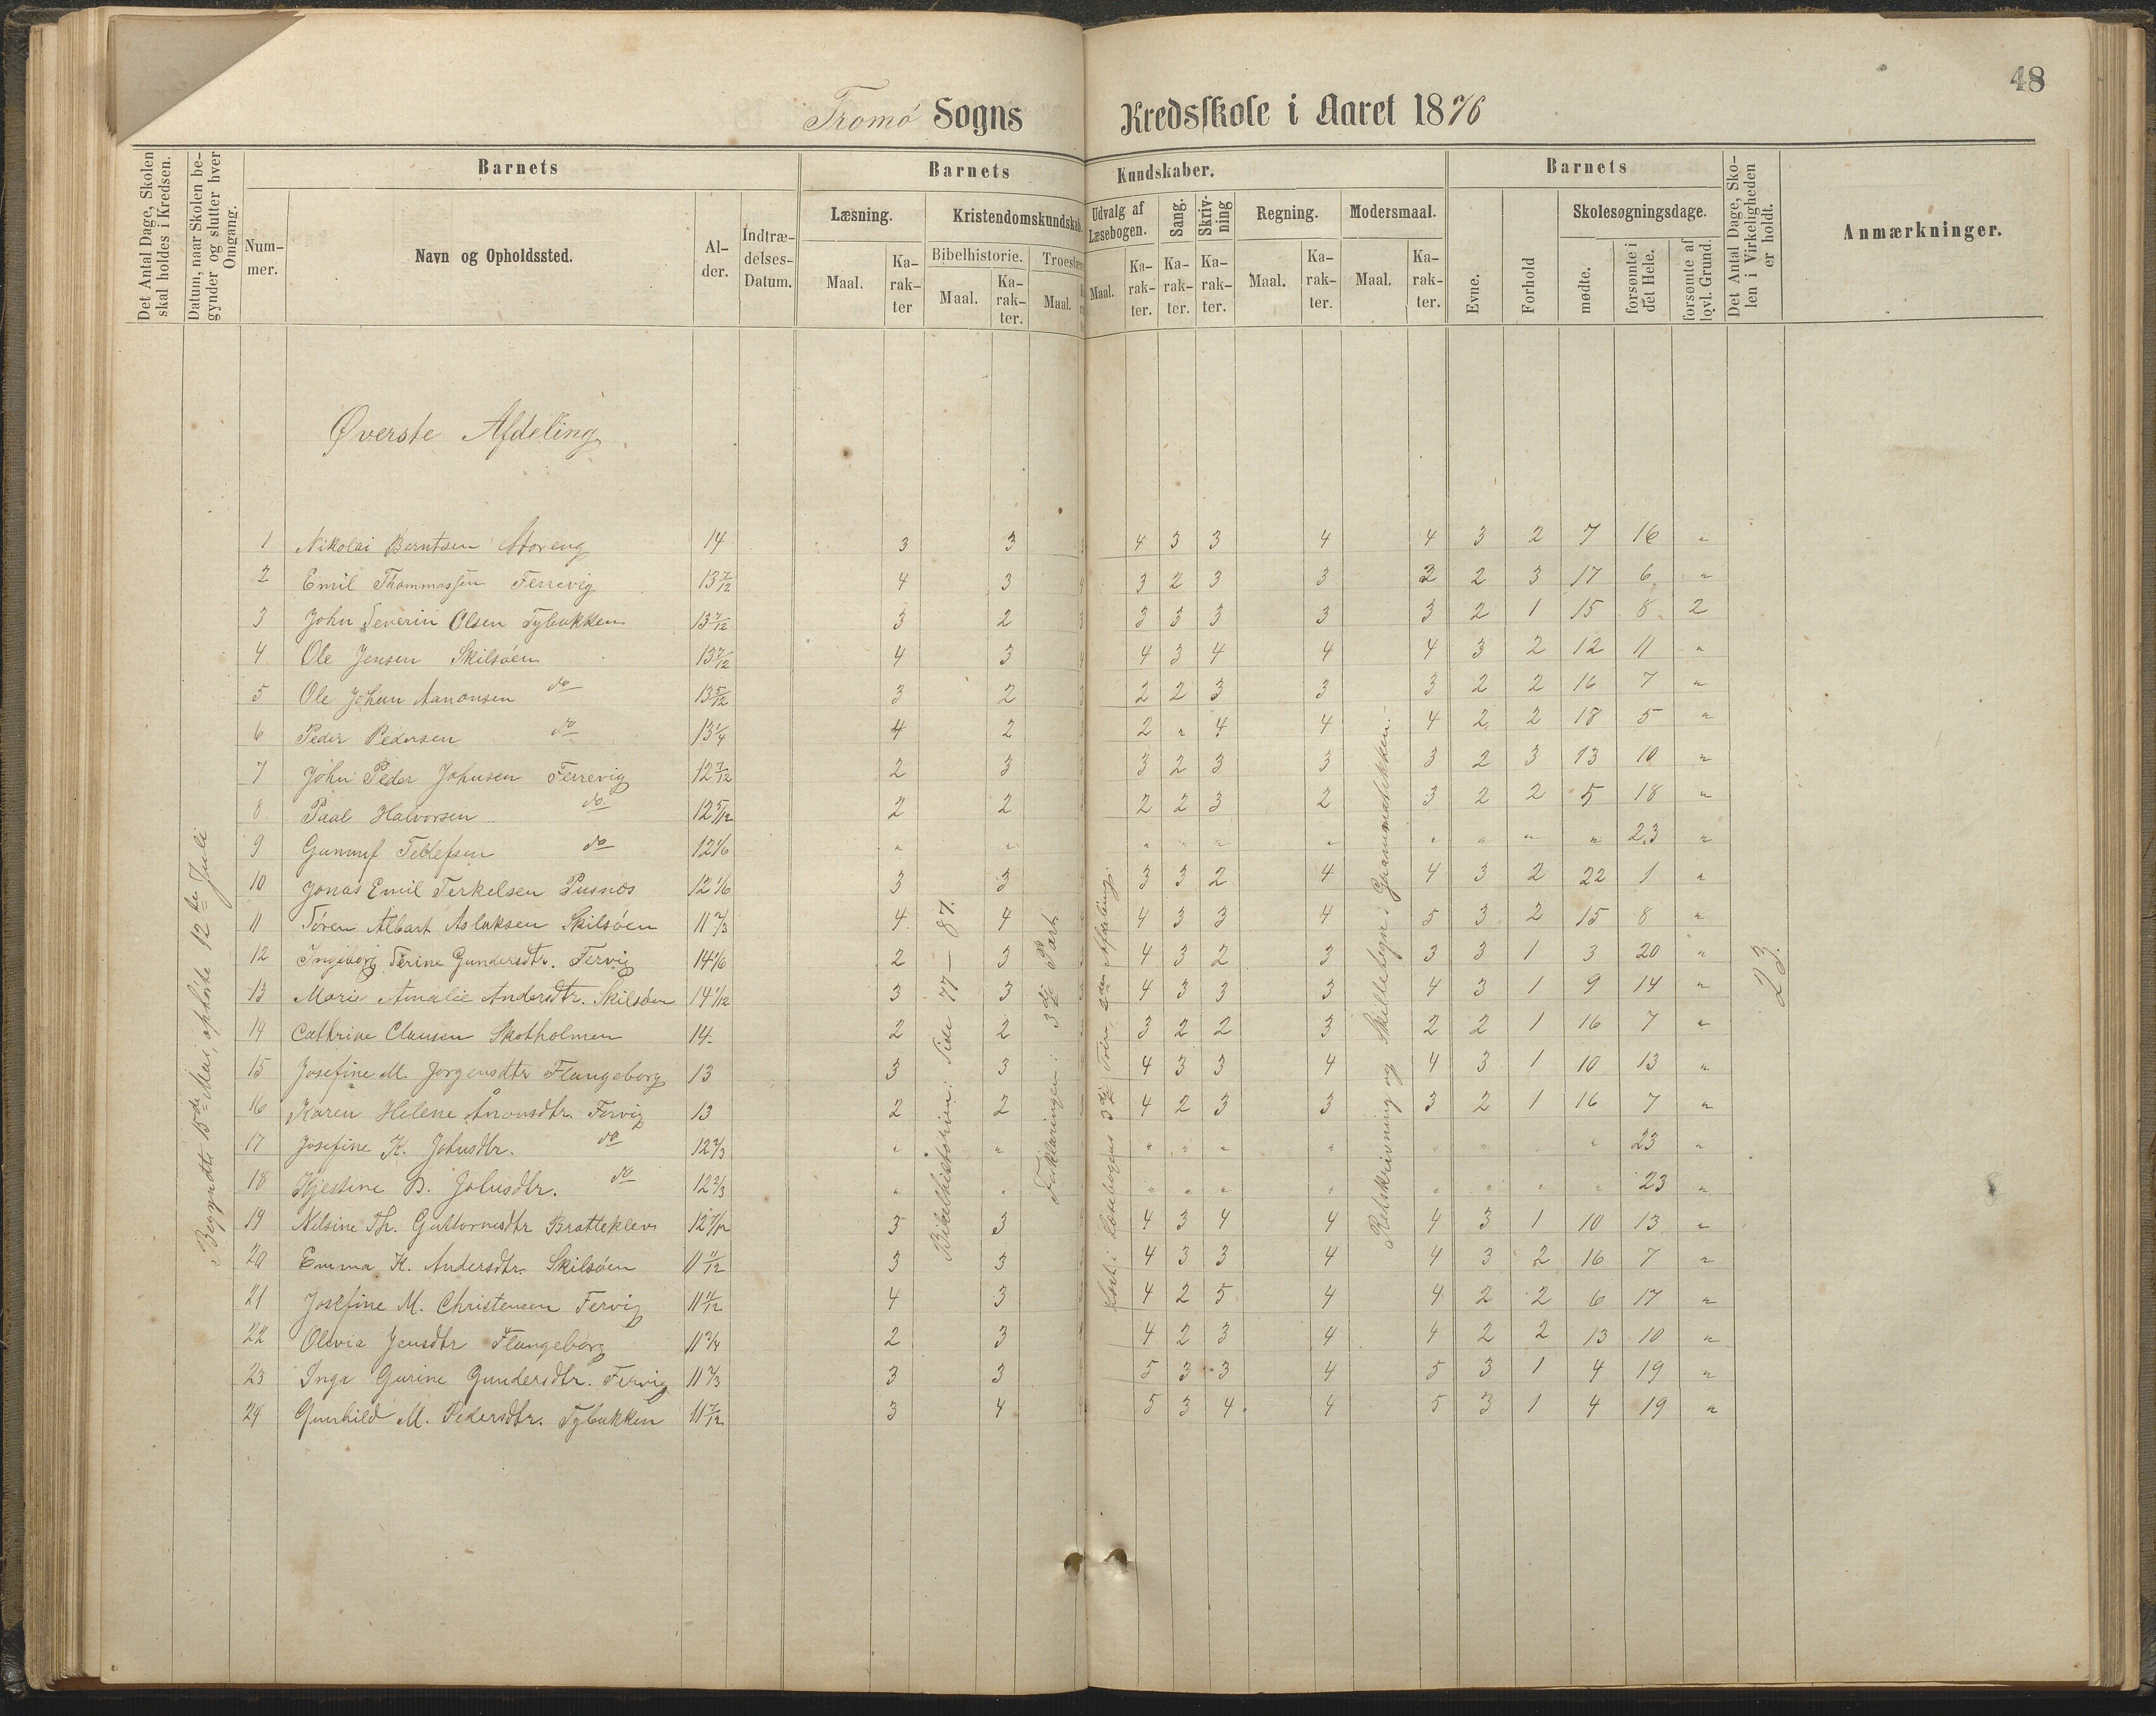 48
Tromø Sogns Kredsskole i Aaret 1876
Det Antal Dage, Skolen skal holdes i Kredsen.
Datum, naar Skolen begynder og slutter hver Omgang.
Barnets
Nummer.
Navn og Opholdssted.
Alder.
Indtrædelses-Datum.
Barnets Kundskaber.
Læsning.
Maal.
Karakter
Kristendomskundskab.
Bibelhistorie.
Maal.
Karakter.
Troeslære
Maal.
Udvalg af Læsebogen.
Maal.
Karakter.
Sang.
Karakter.
Skrivning
Karakter.
Regning.
Maal.
Karakter.
Modersmaal.
Maal.
Karakter.
Barnets
Evne.
Forhold
Skolesøgningsdage.
mødte.
forsømte i det Hele.
forsømte af lovl. Grund.
Det Antal Dage, Skolen i Virkeligheden er holdt.
Anmærkninger.
Øverste Afdeling
Begyndte 15de Mai, ophørte 12te Juli
1 Nikolai Berntsen Storeng 14 3 3 3 4 3 3 4 4 3 2 7 16 "
2 Emil Thommassen Ferrevig 13 7/12 4 3 4 3 2 3 3 3 2 3 17 6 "
3 John Severin Olsen Tybakken 13 7/12 3 2 3 3 3 3 3 3 2 1 15 8 2
4 Ole Jensen Skilsøen 13 7/12 4 3 4 4 3 4 4 4 3 2 12 11 "
5 Ole Johan Aanonsen do 13 5/12 3 2 3 2 2 3 3 3 2 2 16 7 "
6 Peder Pedersen do 13 1/4 4 2 2 " 4 4 4 2 2 18 5 "
7 John Peder Johnsen Ferrevig 12 7/12 2 3 3 2 3 3 3 2 3 13 10 "
8 Paal Halvorsen do. 12 5/12 2 2 2 2 3 2 3 2 2 5 18 "
9 Gunnuf Tellefsen do 12 1/6 " " " " " " " " " " 23 "
10 Jonas Emil Terkelsen Pusnes 12 1/6 3 3 3 3 2 4 4 3 2 22 1 "
11 Søren Albart Aslaksen Skilsøen 11 2/3 4 4 4 3 3 4 5 3 2 15 8 "
12 Ingeborg Serine Gundersdtr. Fervig 14 1/6 2 3 4 3 2 3 3 3 1 3 20 "
13 Marie Amalie Andersdtr. Skilsøen 14 1/12 3 3 4 3 3 3 4 3 1 9 14 "
14 Cathrine Clausen Skotholmen 14 2 2 3 2 2 3 2 2 1 16 7 "
15 Josefine M. Jørgensdtr Flangeborg 13 3 3 4 3 3 4 4 3 1 10 13 "
16 Karen Helene Anonsdtr. Fervig 13 2 2 4 2 3 3 3 2 1 16 7 "
17 Josefine K. Johnsdtr. do 12 2/3 " " " " " " " 23 "
18 Kjestine B. Johnsdtr. do 12 2/3 " " " " " " " " " " 23 "
19 Nilsine Th. Guttormsdtr Bratteklev 12 7/12 3 3 4 3 4 4 4 3 1 10 13 "
20 Emma K. Andersdtr. Skilsøen 11 11/12 3 3 4 3 3 4 4 3 2 16 7 "
21 Josefine M. Christensen Fervig 11 11/12 4 3 4 2 5 4 4 2 2 6 17 "
22 Olevia Jensdtr Flangeborg 11 3/4 2 3 4 2 3 4 4 2 2 13 10 "
23 Inga Gurine Gundersdtr. Fervig 11 2/3 3 3 5 3 3 4 5 3 1 4 19 "
24 Gunhild M. Pedersdtr. Tybakken 11 7/12 3 4 5 3 4 4 5 3 1 4 19 "
Bibelhistorien: Side 77 — 87.
Forklaringen: 3die Part
Læst i Læsebogens 3die Trin 2den Afdeling.
Retskrivning og Skilletegn i Grammatikken.
23.